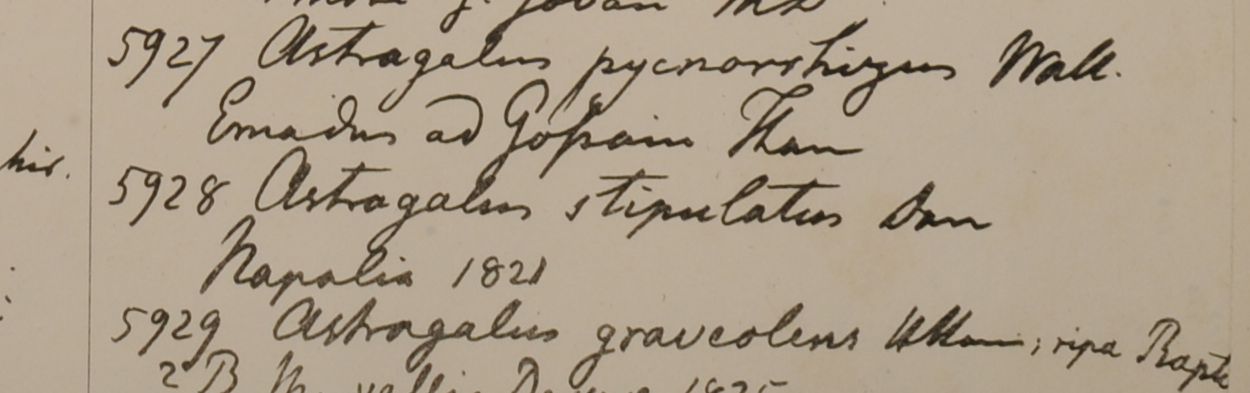 5927 Astragalus pycnorrhizus Wall.
Emadus ad Gossain Than
his.
5928 Astragalus stipulatus Don
Napalia 1821
5929 Astragalus graveolens ; ripa Rapti
2 B vallis 1825